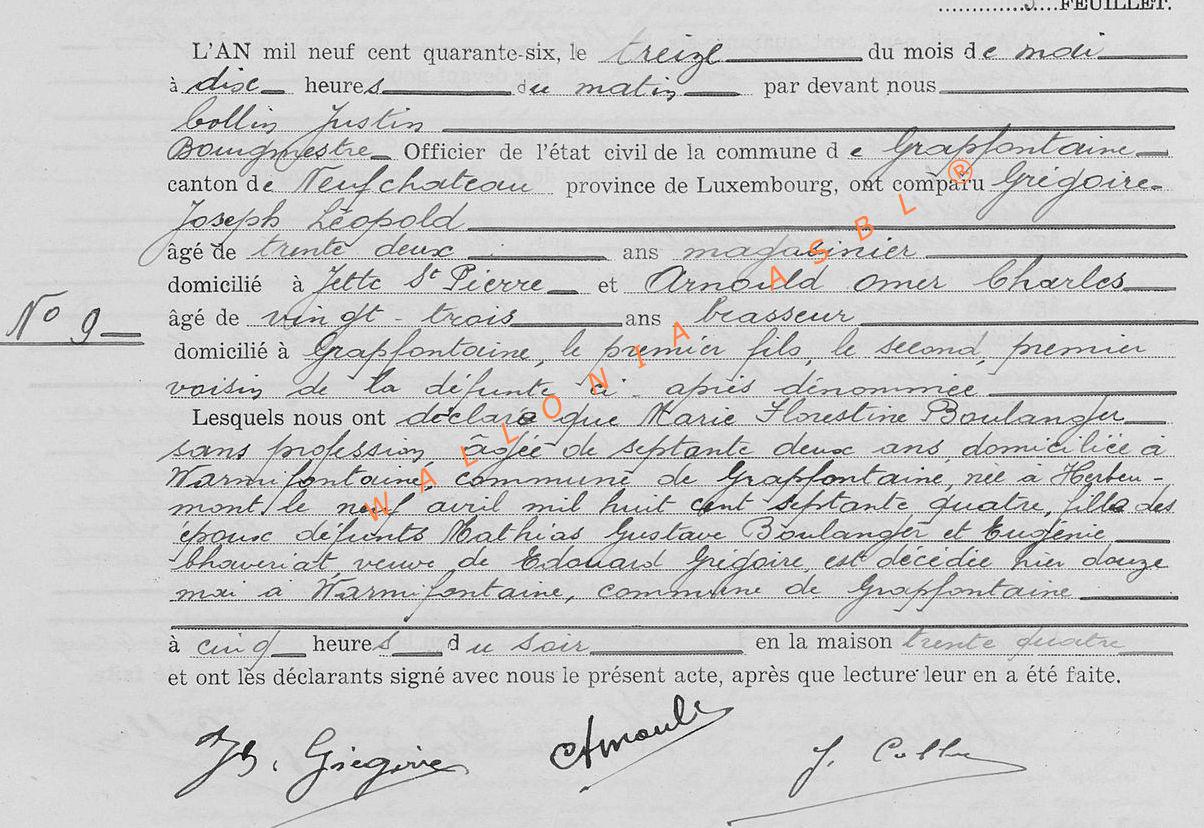 5 FEUILLET.
L'AN mil neuf cent quarante-six, le treize du mois de mai
à dix heures du matin par devant nous
Collin Justin
Bourgmestre Officier de l'état civil de la commune de Grapfontaine
canton de Neufchateau province de Luxembourg, ont comparu Grégoire
Joseph Léopold
âgé de trente deux ans magasinier
domicilié à Jette St Pierre et Arnould Omer Charles
No 9 âgé de vingt-trois ans brasseur
domicilié à Grapfontaine, le premier fils, le second, premier
voisin de la défunte ci-après dénommée
Lesquels nous ont déclaré que Marie Florestine Boulanger
sans profession, âgée de septante deux ans, domiciliée à
Warmifontaine, commune de Grapfontaine, née à Herbeu-
mont, le neuf avril mil huit cent septante quatre, fille des
époux défunts Mathias Gustave Boulanger et Eugénie
Chaveriat, veuve de Edouard Grégoire, est décédée hier douze
mai à Warmifontaine, commune de Grapfontaine
à cinq heures du soir en la maison trente quatre
et ont les déclarants signé avec nous le présent acte, après que lecture leur en a été faite.
Js. Grégoire Arnould J. Collin
WALLONIA ASBL ®